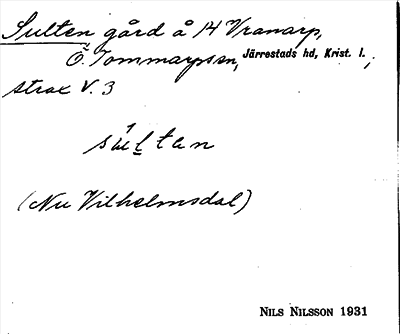 Sulten gård å 14 Vranarp,
Ö. Tommarps sn, Järrestads hd, Krist. l.,
strax V. 3
súltan
(Nu Vilhelmsdal)
NILS NILSSON 1931